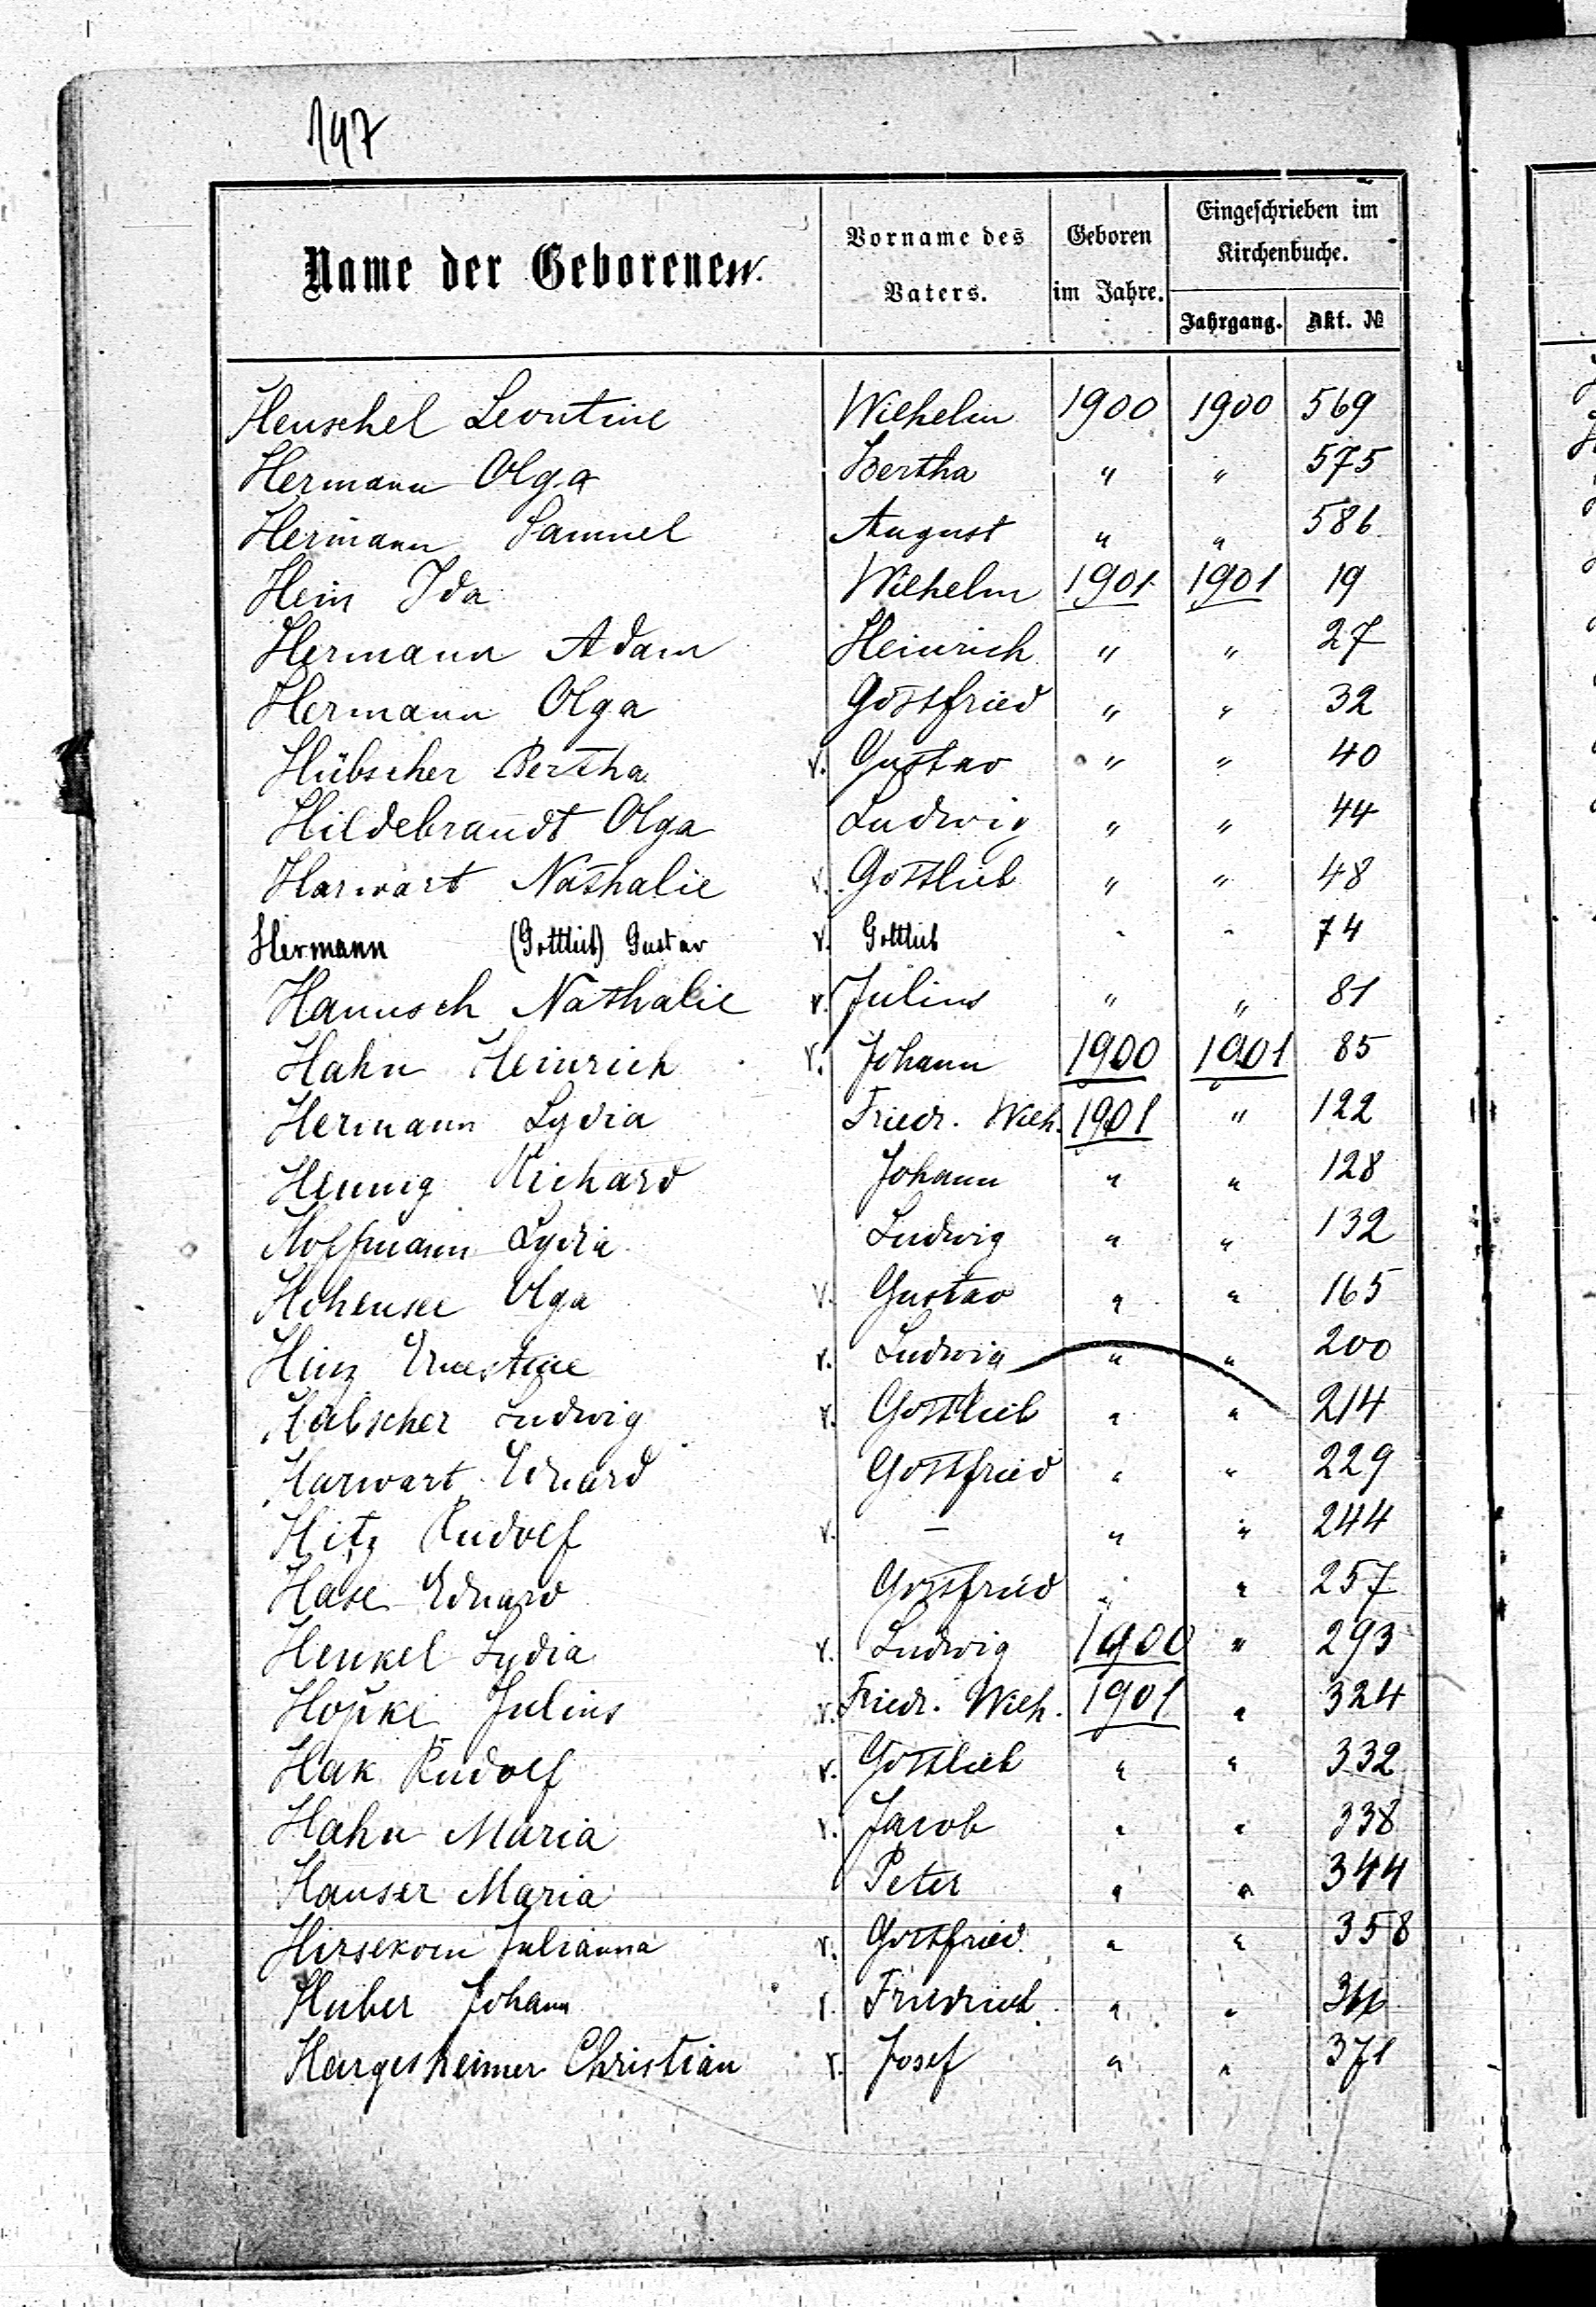 197
Name der Geborenen.
Vorname des Vaters.
Geboren im Jahre.
Eingeschrieben im Kirchenbuche.
Jahrgang. Akt. №
Henschel Leontine Wilhelm 1900 1900 569
Hermann Olga Bertha " " 575
Hermann Samuel August " " 586
Hein Ida Wilhelm 1901 1901 19
Hermann Adam Heinrich " " 27
Hermann Olga Gottfried " " 32
Hübscher Bertha v. Gustav " " 40
Hildebrandt Olga Ludwig " " 44
Harwart Nathalie v. Gottlieb " " 48
Hermann (Gottlieb) Gustav v. Gottlieb " " 74
Hanusch Nathalie v. Julius " " 81
Hahn Heinrich v. Johann 1900 1901 85
Hermann Lydia Friedr. Wilh. 1901 " 122
Hennig Richard Johann " " 128
Hoffmann Lydia Ludwig " " 132
Hohensee Olga v. Gustav " " 165
Hinz Ernestine v. Ludwig " " 200
Hübscher Ludwig v. Gottlieb " " 214
Harwart Eduard Gottfried " " 229
Hitz Rudolf v. — " " 244
Hase Eduard Gottfried " " 257
Henkel Lydia v. Ludwig 1900 " 293
Hopke Julius v. Friedr. Wilh. 1901 " 324
Hak Rudolf v. Gottlieb " " 332
Hahn Maria v. Jacob " " 338
Hauser Maria Peter " " 344
Hirsekorn Julianna v. Gottfried " " 358
Huber Johann v. Friedrich " "
Hergesheimer Christian v. Josef " " 371